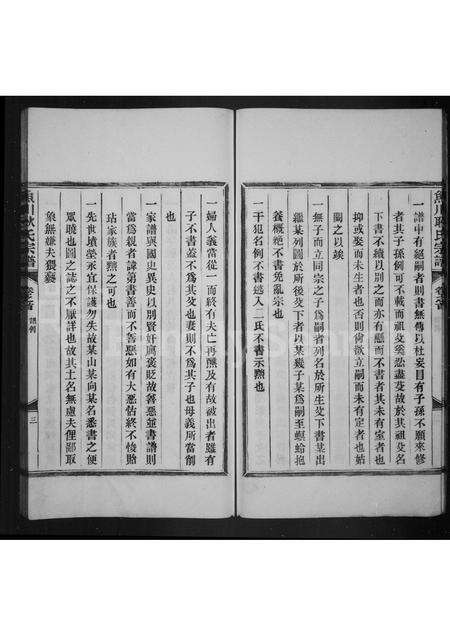 魚川耿氏宗譜
卷之首
一譜中有絕嗣者則書無傳以杜妄冒有子孫不願來修
者其子孫例可不載而祖父奚忍盡芟故於其祖父名
下書不續以別之而亦有慇而不書者其未有室者也
抑或娶而未生者也否則尙欲立嗣而未有定者也姑
闕之以竢
一無子而立同宗之子爲嗣者列名於所生父下書某出
繼某列圖於所後父下者以某幾子某爲嗣至螟蛉抱
養概絕不書免亂宗也
一干犯名例不書逃入二氏不書示黜也
一婦人義當從一而終有夫亡再醮及有故被出者雖有
子不書蓋不爲其父也妻則不爲其子也母義所當削
也
一家譜與國史異史以別賢奸寓褒貶故善惡並書譜則
當爲親者諱第書善而不書惡如有大惡怙終不悛貽
玷家族者黜之可也
一先世墳塋永宜保護勿失故某山某向某名悉書之便
眾曉也圖之誌之不厭詳也故其土名無慮夫俚鄙取
象無嫌夫猥褻
魚川耿氏宗譜
卷之首
譜例
三